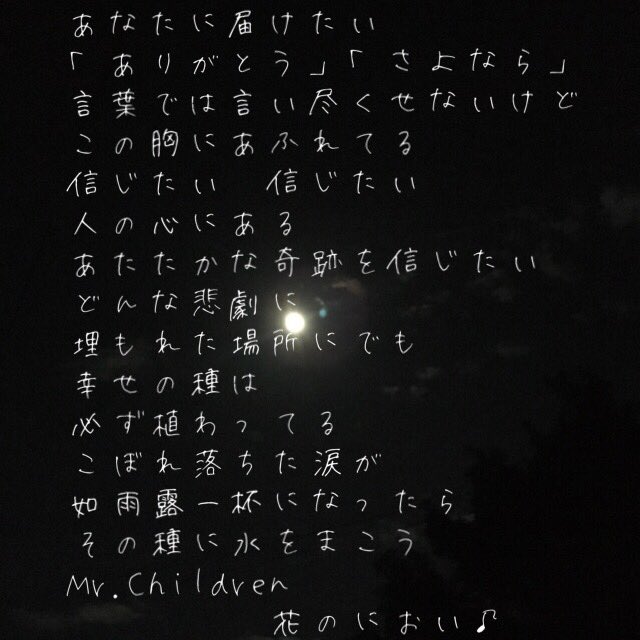 あなたに届けたい
「ありがとう」「さよなら」
言葉では言い尽くせないけど
この胸にあふれてる
信じたい　信じたい
人の心にある
あたたかな奇跡を信じたい
どんな悲劇に
埋もれた場所にでも
幸せの種は
必ず植わってる
こぼれ落ちた涙が
如雨露一杯になったら
その種に水をまこう
Mr.Children
花のにおい♪